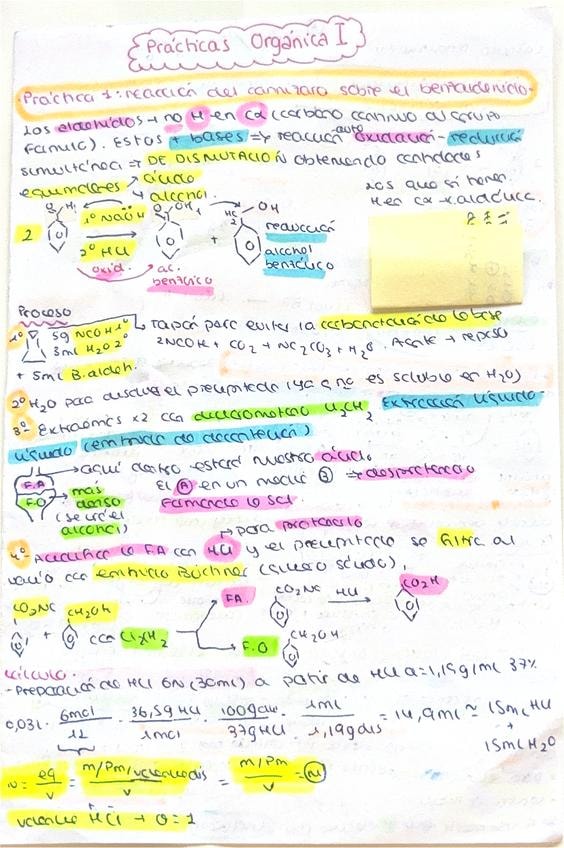 Prácticas Orgánica I
Práctica 1: reacción del cannizaro sobre el benzaldehido.
Los aldehidos → no H en Cα (carbono continuo al grupo
Formilo). Estos + bases => reacción auto oxidación - reducción
simultánea => DE DISMUTACIÓN obteniendo cantidades
equimolares → ácido
↳ alcohol.
los que si tienen
H en Cα → x.aldólica.
2 1º NaOH OH + OH
2º HCl
reducción
alcohol
bencílico
oxid. ac.
benzoico
Proceso
1º 5g NaOH 1º ↳ tapar para evitar la carbonatación de la base
3ml H2O 2º 2NaOH + CO2 → Na2CO3 + H2O. Agito + reposo
+ 5ml B.aldeh.
2º H2O para disolver el precipitado (ya q no es soluble en H2O)
3º Extraemos x2 con diclorometano Cl2CH2 Extracción líquido-
líquido (embudo de decantación)
→ aquí dentro estará nuestro ácido.
F.A El A en un medio B => desprotonado
F.O → más
denso
formando la sal
(se va el
alcohol)
↱ para protonarlo
4º Acidifica la FA con HCl y el precipitado se filtra al
vacío con embudo Büchner (queda sólido).
CO2Na CH2OH FA. CO2Na HCl → CO2H
+ con Cl2CH2 F.O CH2OH
Cálculo.
- Preparación de HCl 6N (30ml) a partir de HCl d=1,19g/ml 37%
0,03l · 6mol/1l · 36,5g HCl/1mol · 100g dis/37g HCl · 1ml/1,19g dis = 14,9ml ≈ 15ml HCl
+
15ml H2O
N = eq/V = m/Pm/valencia dis/V = m/Pm/V = M
valencia HCl → a=1